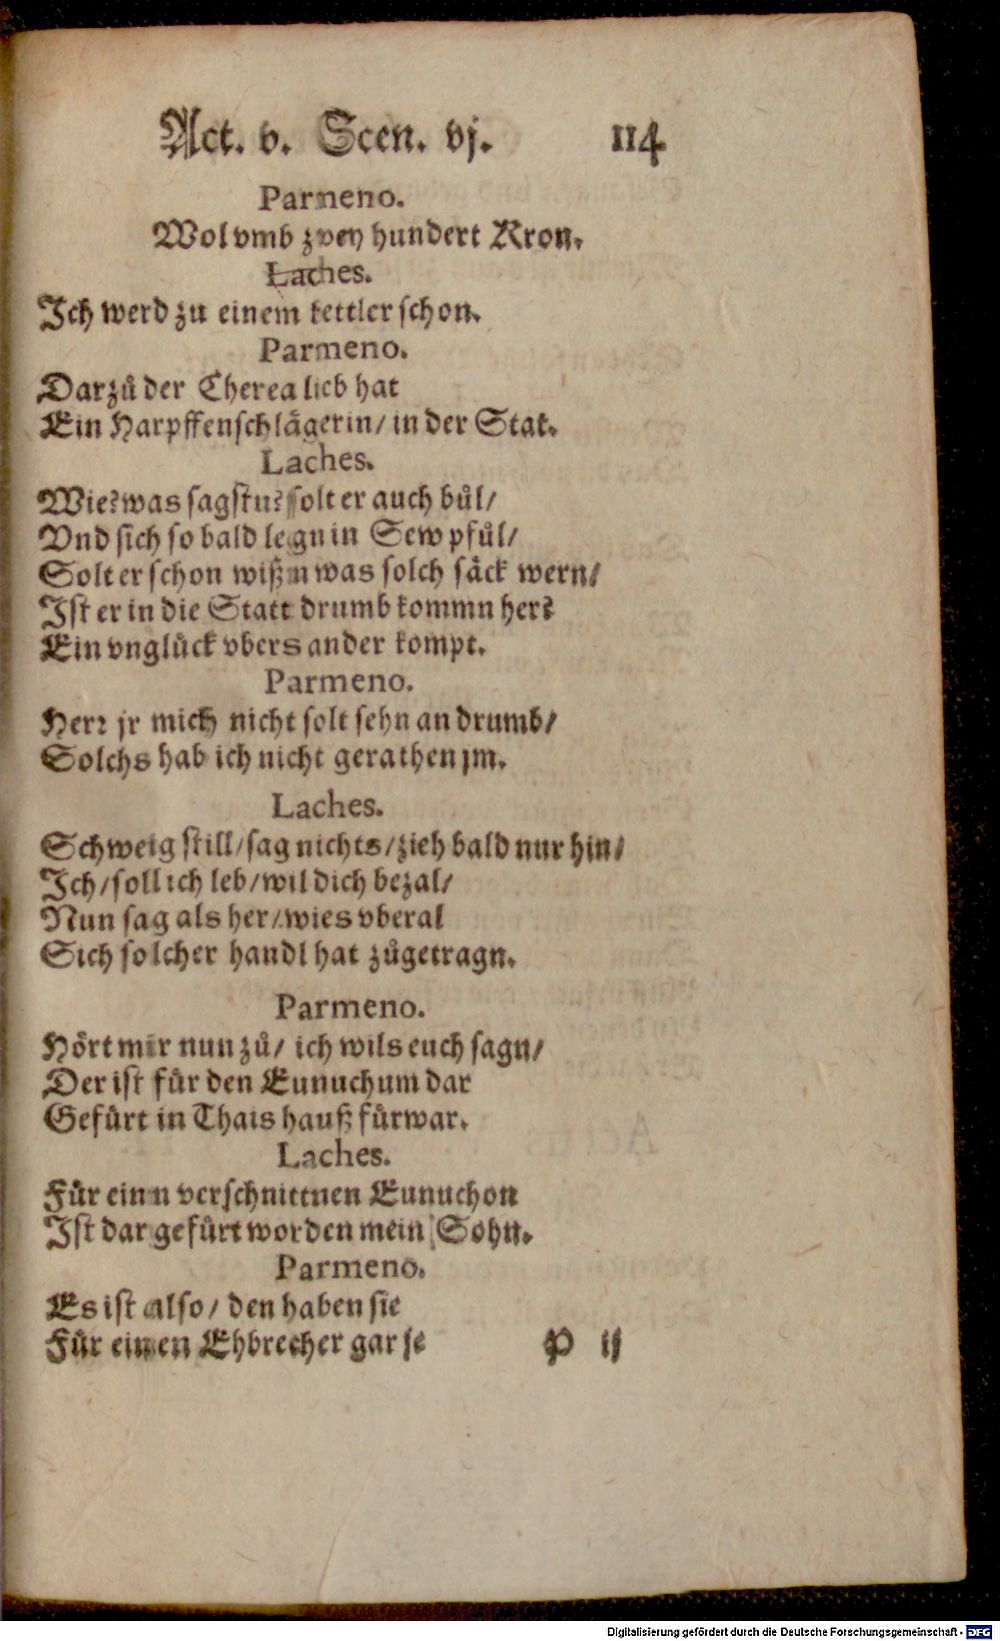 Act. v. Scen. vj. 114
Parmeno.
Wol vmb zwey hundert Kron.
Laches.
Ich werd zu einem kettler schon.
Parmeno.
Darzů der Cherea lieb hat
Ein Harpffenschlägerin/ in der Stat.
Laches.
Wie? was sagstu? solt er auch bůl/
Vnd sich so bald legn in Sew pfůl/
Solt er schon wißn was solch säck wern/
Ist er in die Statt drumb kommn her?
Ein vnglück vbers ander kompt.
Parmeno.
Herr jr mich nicht solt sehn an drumb/
Solchs hab ich nicht gerathen jm.
Laches.
Schweig still/ sag nichts/ zieh bald nur hin/
Ich/ soll ich leb/ wil dich bezal/
Nun sag als her/ wies vberal
Sich solcher handl hat zůgetragn.
Parmeno.
Hört mir nun zů/ ich wils euch sagn/
Der ist für den Eunuchum dar
Gefürt in Thais hauß fürwar.
Laches.
Für einn verschnittnen Eunuchon
Ist dar gefürt worden mein Sohn.
Parmeno.
Es ist also/ den haben sie
Für einen Ehbrecher gar je
P ij
Digitalisierung gefördert durch die Deutsche Forschungsgemeinschaft - DFG